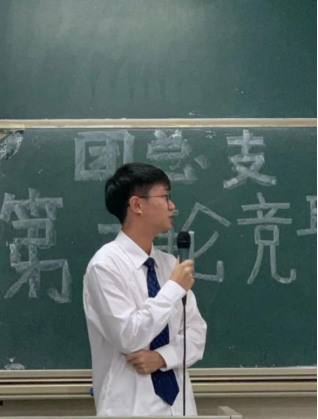 团总支
第一轮竞